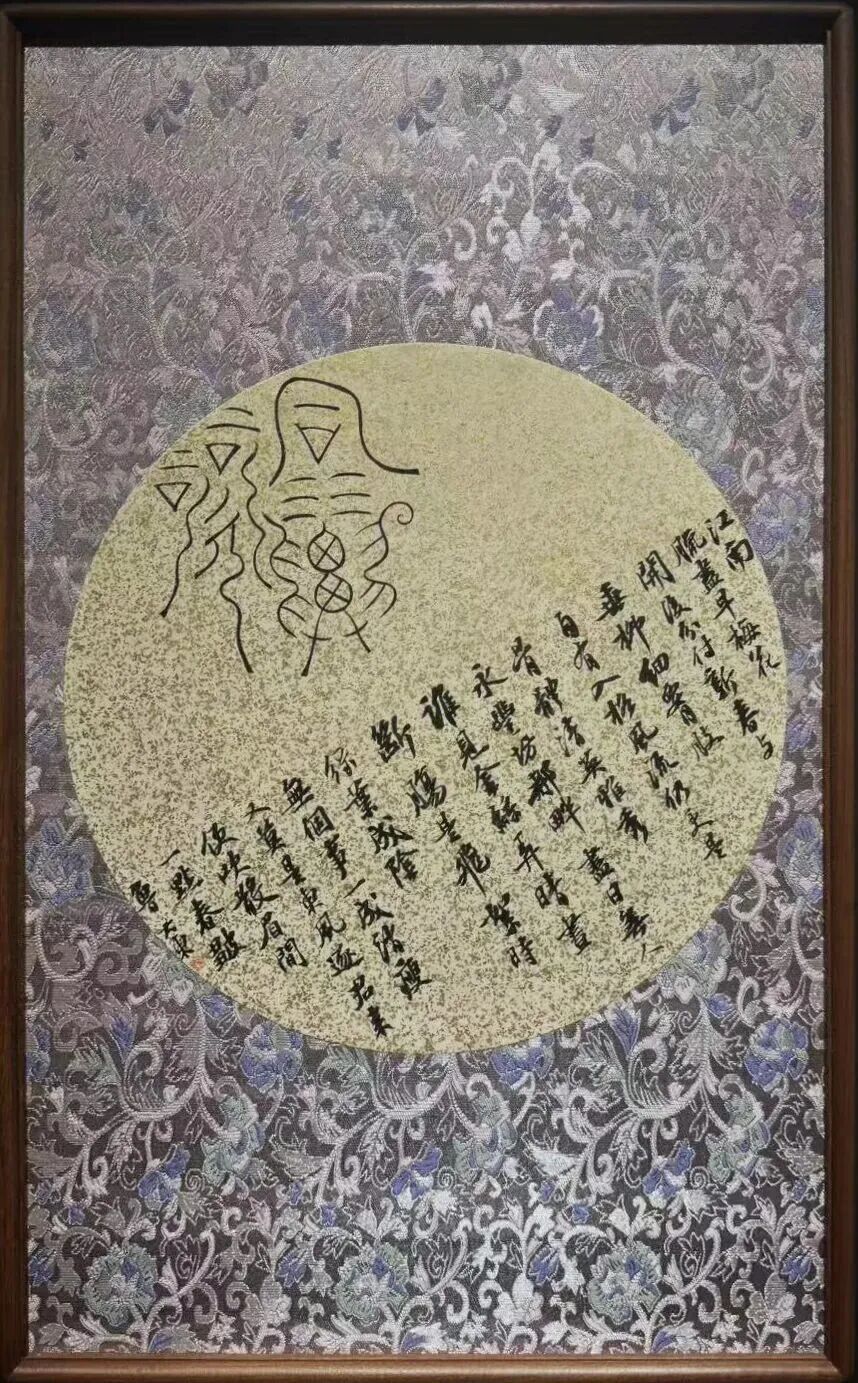 江南
臘盡早梅花
開後分付新春与
垂柳細腰肢
自有入格風流仍更是
骨體清英雅秀
永豐坊那畔盡日無人
誰見金絲弄晴晝
斷腸是飛絮時
綠葉成陰
無個事一成消瘦
又莫是東風逐君來
便吹散眉間
一點春皺
魯大東